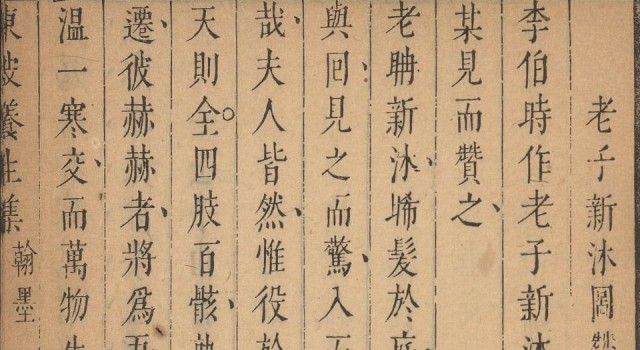 老子新沐圖
李伯時作老子新沐
某見而贊之
老聃新沐晞髮於庭
與回見之而驚入
哉夫人皆然惟役於
天則全四肢百骸
遷彼赫赫者將為五
溫一寒交而萬物生
東坡養生集 翰墨